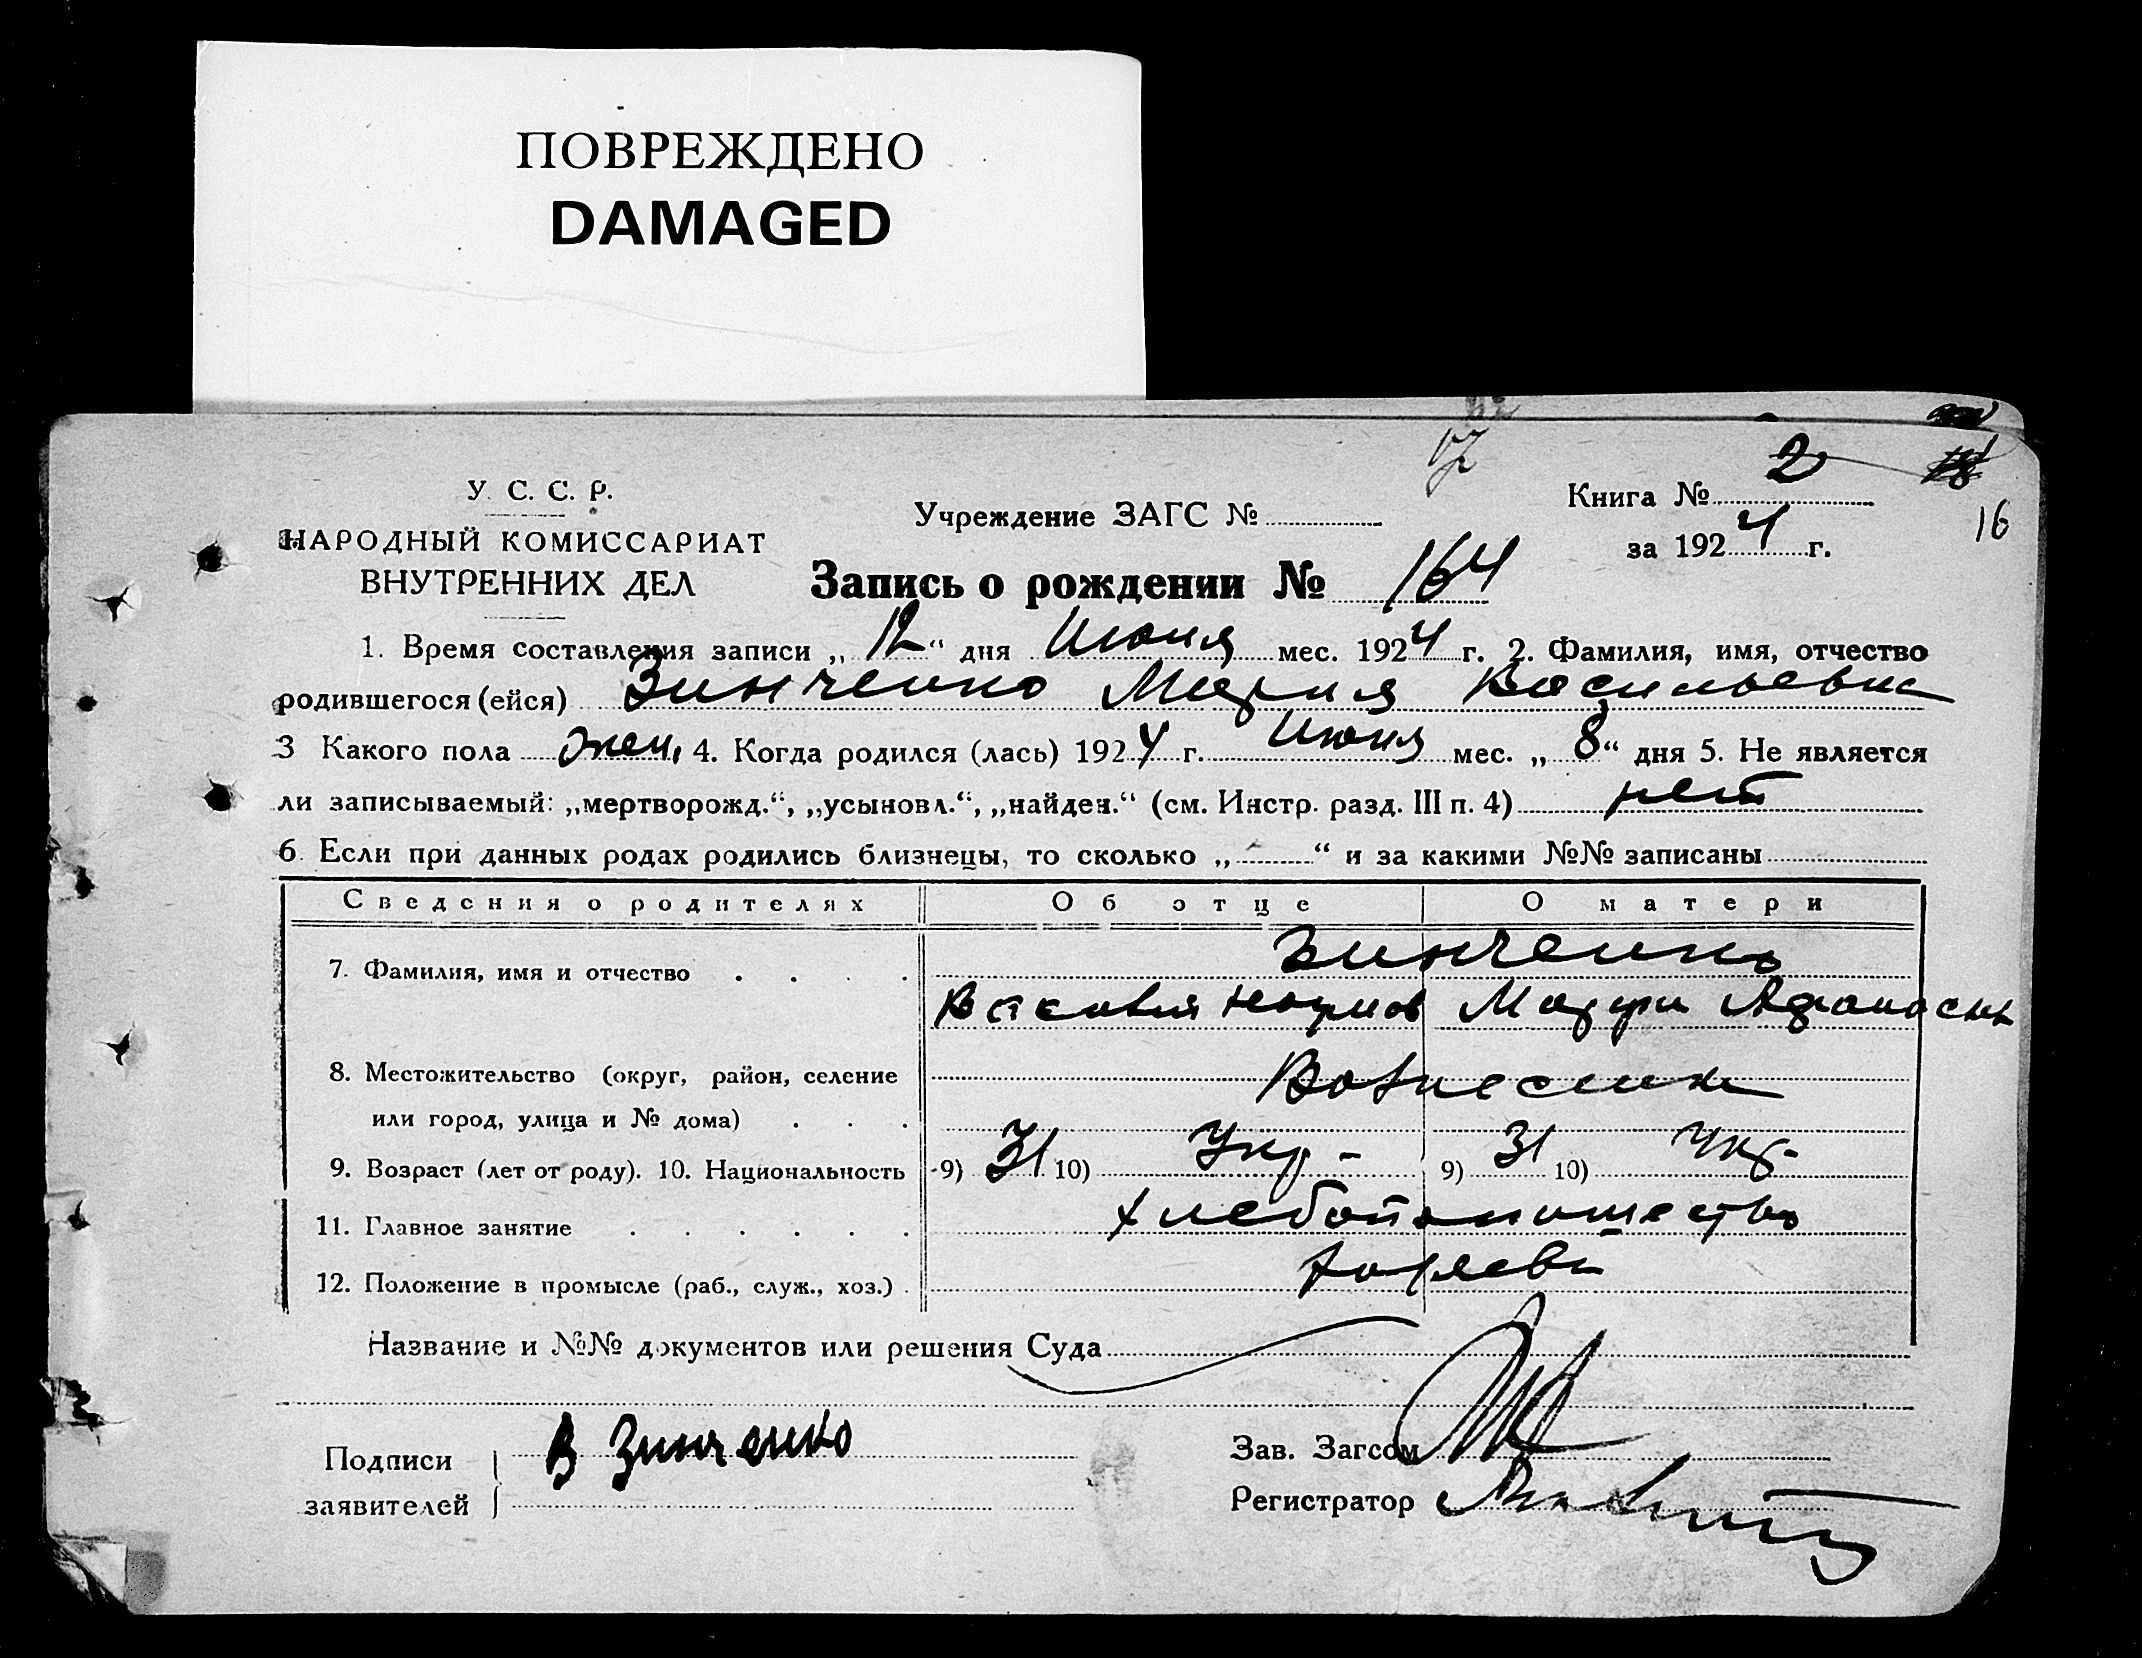 ПОВРЕЖДЕНО
DAMAGED
У. С. С. Р.
НАРОДНЫЙ КОМИССАРИАТ
ВНУТРЕННИХ ДЕЛ
Учреждение ЗАГС №
Книга № 2
16
за 1924 г.
Запись о рождении № 164
1. Время составления записи „12“ дня Июня мес. 1924 г. 2. Фамилия, имя, отчество
родившегося (ейся) Зинченко Мария Васильевна
3 Какого пола жен. 4. Когда родился (лась) 1924 г. Июня мес. „8“ дня 5. Не является
ли записываемый: „мертворожд.“, „усыновл.“, „найден.“ (см. Инстр. разд. III п. 4) нет
6. Если при данных родах родились близнецы, то сколько „ “ и за какими №№ записаны
Сведения о родителях Об отце О матери
7. Фамилия, имя и отчество Зинченко
8. Местожительство (округ, район, селение
или город, улица и № дома)
9. Возраст (лет от роду). 10. Национальность 9) 31 10) Укр- 9) 31 10) Укр-
11. Главное занятие хлебопашество
12. Положение в промысле (раб., служ., хоз.)
Название и №№ документов или решения Суда
Подписи
заявителей
В Зинченко
Зав. Загсом
Регистратор